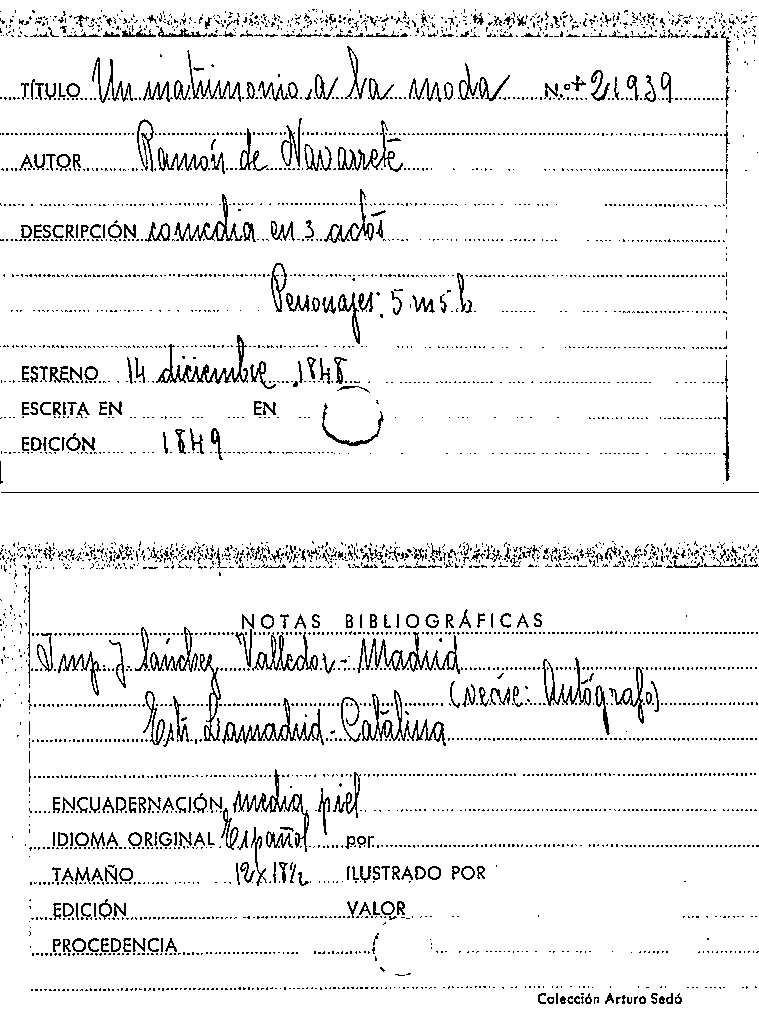 TÍTULO Un matrimonio a la moda N.º + 21939
AUTOR Ramón de Navarrete
DESCRIPCIÓN comedia en 3 actos
Personajes: 5 m 5 h
ESTRENO 14 diciembre 1848
ESCRITA EN EN
EDICIÓN 1849
NOTAS BIBLIOGRÁFICAS
Imp. J. Sánchez Valledor - Madrid
(véase: Autógrafo)
Estr. Lamadrid - Catalina
ENCUADERNACIÓN media piel
IDIOMA ORIGINAL Español por
TAMAÑO 12 x 18½ ILUSTRADO POR
EDICIÓN VALOR
PROCEDENCIA
Colección Arturo Sedó